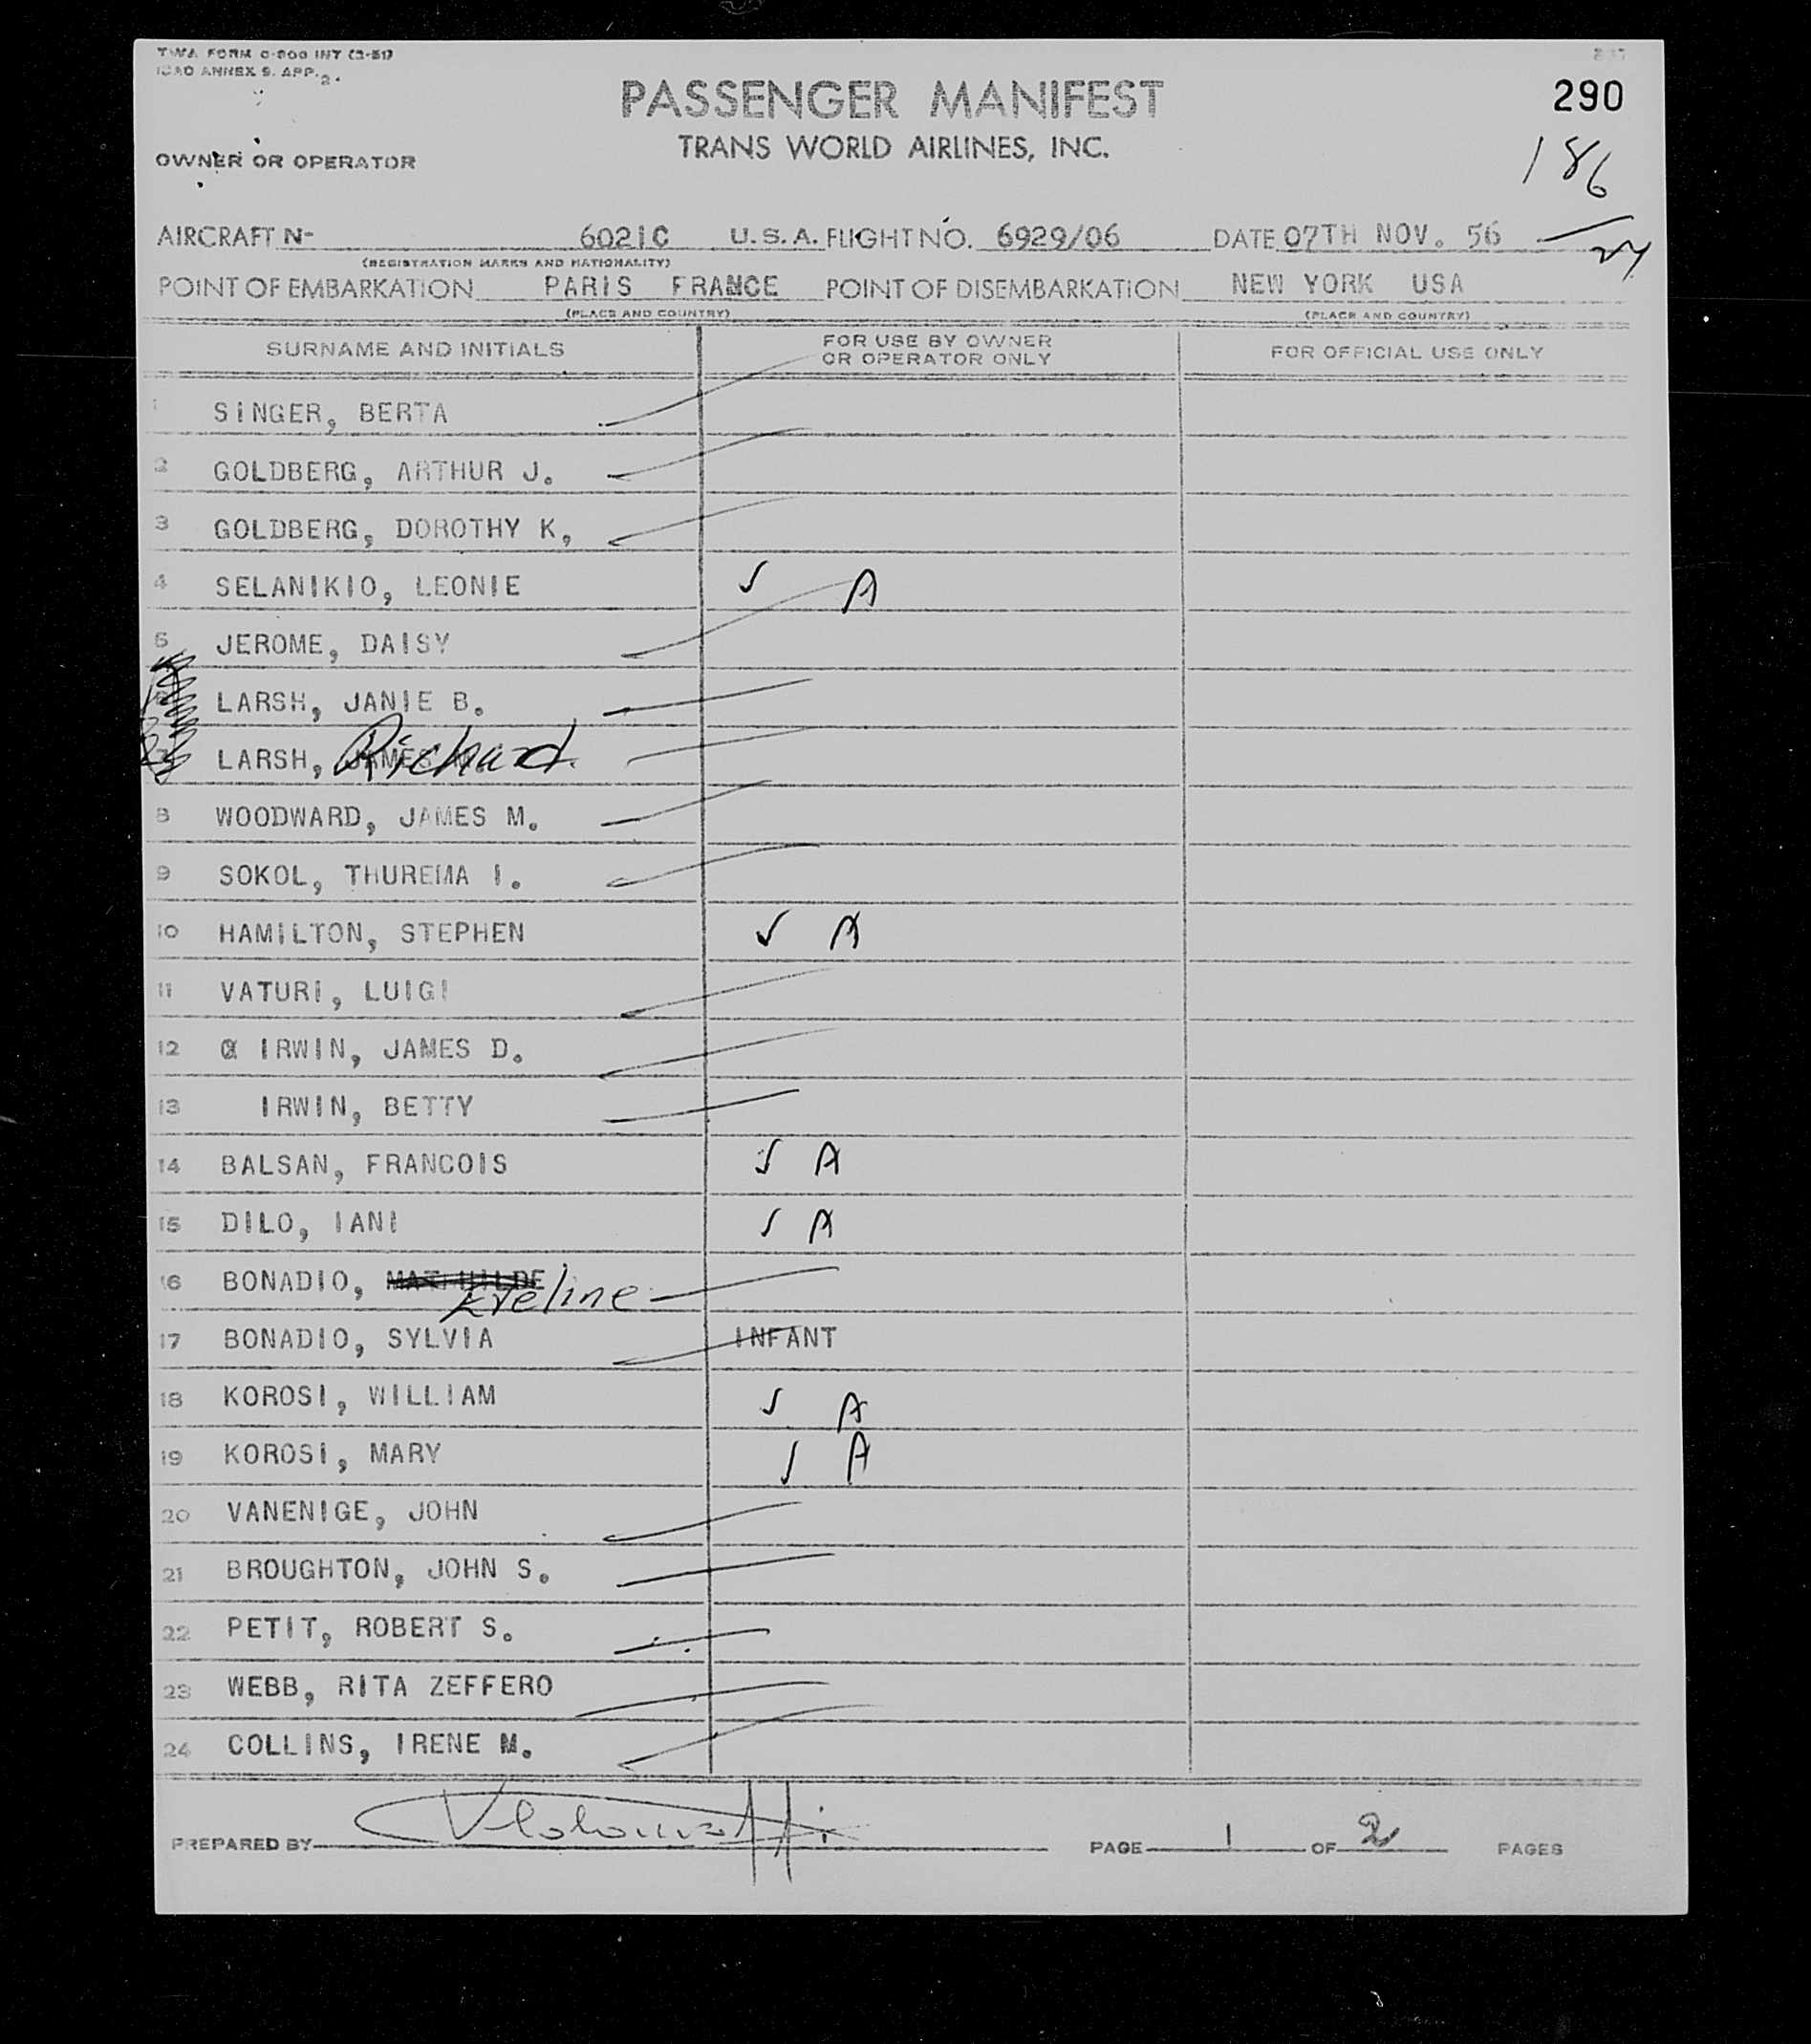 TWA FORM C-900 INT (3-51)
ICAO ANNEX 9. APP. 2.
PASSENGER MANIFEST
290
TRANS WORLD AIRLINES, INC.
186
OWNER OR OPERATOR
AIRCRAFT N- 6021C U.S.A. FLIGHT NO. 6929/06 DATE 07TH NOV. 56
(REGISTRATION MARKS AND NATIONALITY)
POINT OF EMBARKATION PARIS FRANCE POINT OF DISEMBARKATION NEW YORK USA
(PLACE AND COUNTRY) (PLACE AND COUNTRY)
SURNAME AND INITIALS FOR USE BY OWNER OR OPERATOR ONLY FOR OFFICIAL USE ONLY
1 SINGER, BERTA
2 GOLDBERG, ARTHUR J.
3 GOLDBERG, DOROTHY K,
4 SELANIKIO, LEONIE ✓ A
5 JEROME, DAISY
LARSH, JANIE B.
LARSH, Richard
8 WOODWARD, JAMES M.
9 SOKOL, THUREMA I.
10 HAMILTON, STEPHEN ✓ A
11 VATURI, LUIGI
12 IRWIN, JAMES D.
13 IRWIN, BETTY
14 BALSAN, FRANCOIS ✓ A
15 DILO, IANI ✓ A
16 BONADIO, MATHILDE Eveline
17 BONADIO, SYLVIA INFANT
18 KOROSI, WILLIAM ✓ A
19 KOROSI, MARY ✓ A
20 VANENIGE, JOHN
21 BROUGHTON, JOHN S.
22 PETIT, ROBERT S.
23 WEBB, RITA ZEFFERO
24 COLLINS, IRENE M.
PREPARED BY PAGE 1 OF 2 PAGES